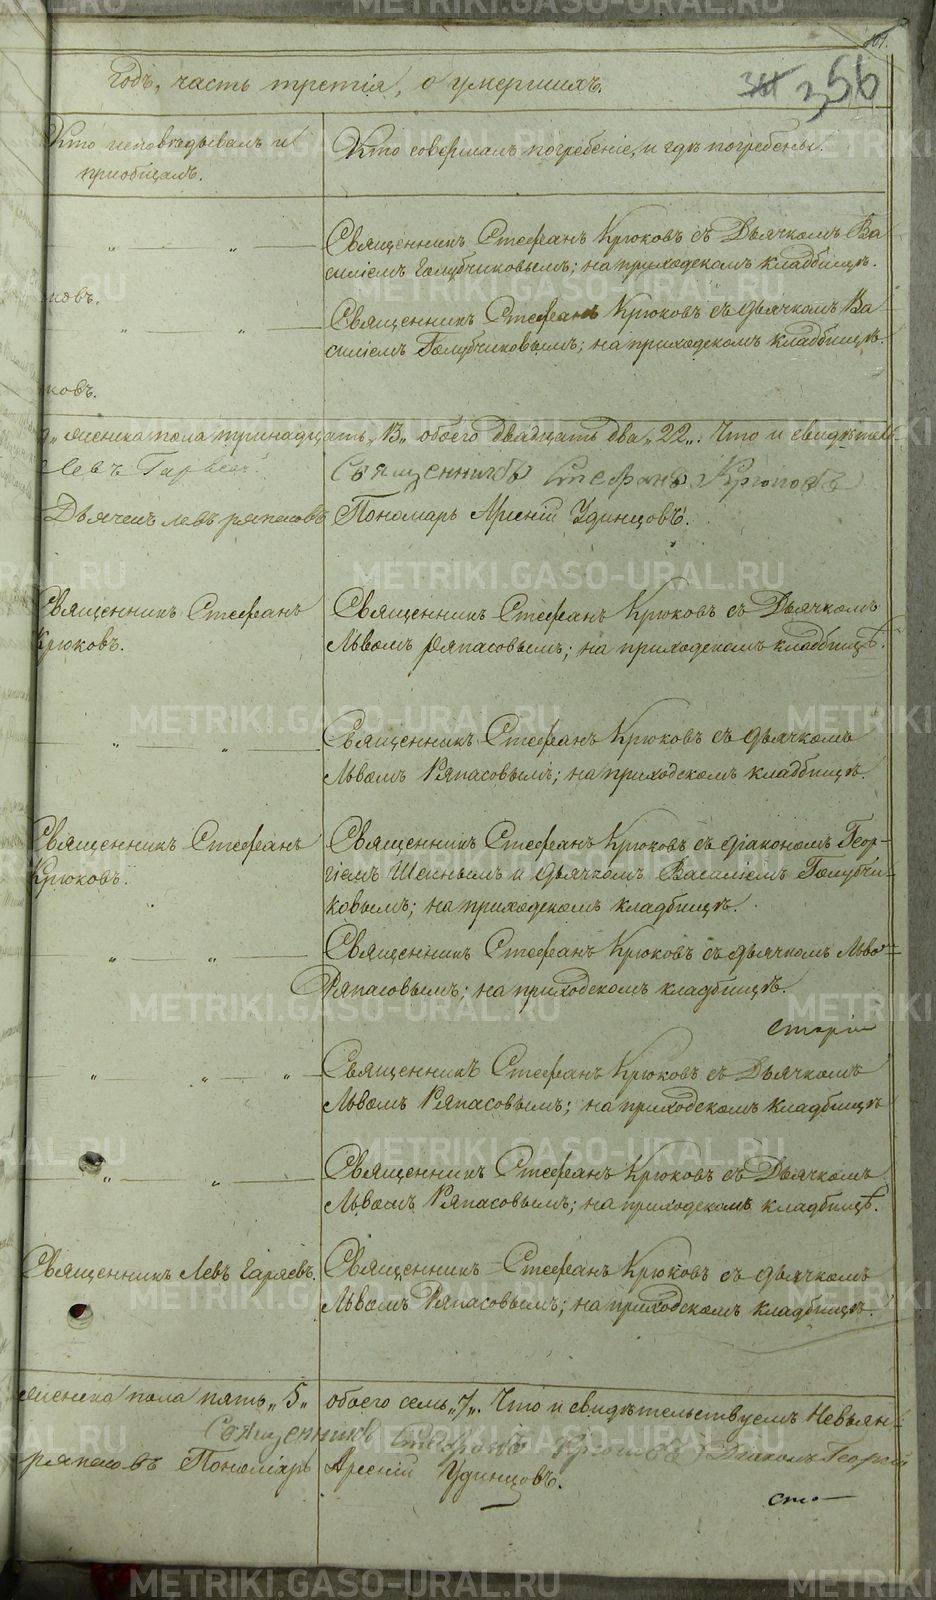 101.
356
годъ, часть третія, о умершихъ.
Кто исповѣдывалъ и
пріобщалъ.
Кто совершалъ погребеніе, и гдѣ погребены.
Священникъ Стефанъ Крюковъ съ Дьячкомъ Ва
силіемъ Голубчиковымъ; на приходскомъ кладбищѣ.
ковъ.
Священникъ Стефанъ Крюковъ съ дьячкомъ Ва
силіемъ Голубчиковымъ; на приходскомъ кладбищѣ.
ковъ.
женска пола тринадцать „13„ обоего двадцать два „22„. Что и свидѣтель
Левъ Гаряевъ. Священникъ Стефанъ Крюковъ
Дьячекъ Левъ Ряпасовъ Пономарь Арсеній Удинцовъ.
Священникъ Стефанъ
Крюковъ.
Священникъ Стефанъ Крюковъ съ Дьячкомъ
Львомъ Ряпасовымъ; на приходскомъ кладбищѣ.
Священникъ Стефанъ Крюковъ съ дьячкомъ
Львомъ Ряпасовымъ; на приходскомъ кладбищѣ.
Священникъ Стефанъ
Крюковъ.
Священникъ Стефанъ Крюковъ съ діакономъ Геор-
гіемъ и дьячкомъ Василіемъ Голубчи-
ковымъ; на приходскомъ кладбищѣ.
Священникъ Стефанъ Крюковъ съ дьячкомъ Льво-
Ряпасовымъ; на приходскомъ кладбищѣ.
Священникъ Стефанъ Крюковъ съ Дьячкомъ
Львомъ Ряпасовымъ; на приходскомъ кладбищѣ
Священникъ Стефанъ Крюковъ съ Дьячкомъ
Львомъ Ряпасовымъ; на приходскомъ кладбищѣ.
Священникъ Левъ Гаряевъ.
Священникъ Стефанъ Крюковъ съ дьячкомъ
Львомъ Ряпасовымъ; на приходскомъ кладбищѣ.
женска пола пять „5„ обоего семь „7„. Что и свидѣтельствуемъ Невьян-
Священникъ Стефанъ Крюковъ Діаконъ Георгій
Ряпасовъ Пономарь Арсеній Удинцовъ.
METRIKI.GASO-URAL.RU